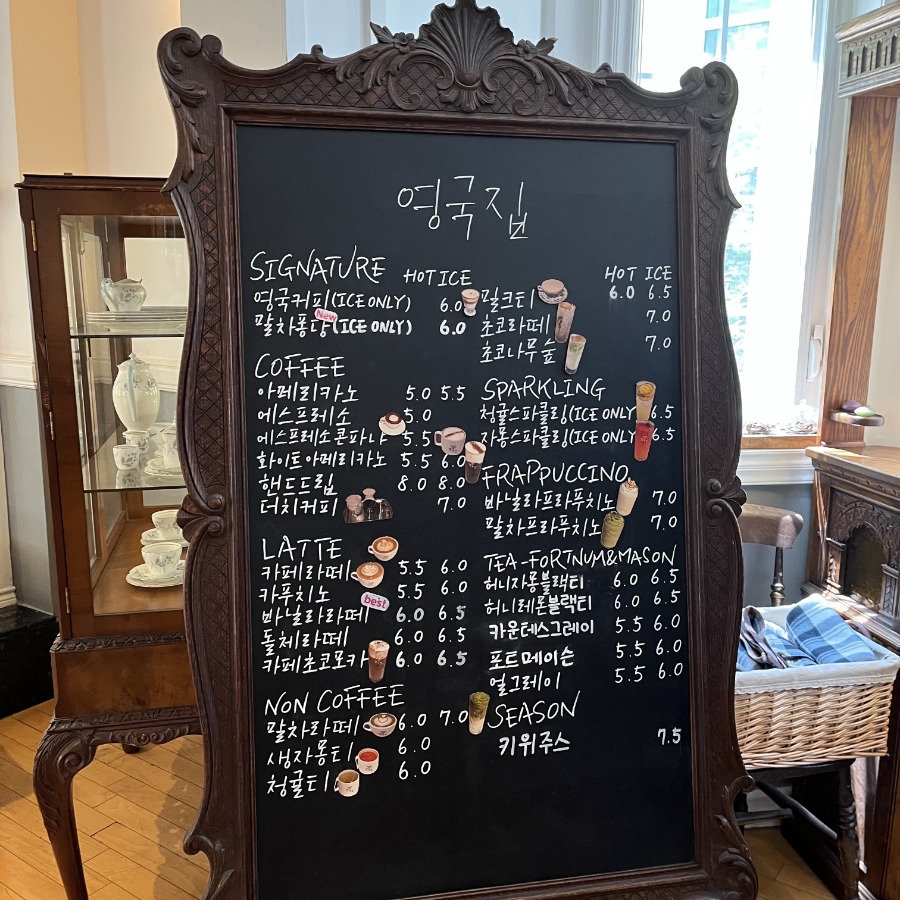 영국집
SIGNATURE HOT ICE
영국커피(ICE ONLY) 6.0
New
말차퐁당(ICE ONLY) 6.0
COFFEE
아메리카노 5.0 5.5
에스프레소 5.0
에스프레소콘파나 5.5
화이트아메리카노 5.5 6.0
핸드드립 8.0 8.0
더치커피 7.0
LATTE
카페라떼 5.5 6.0
카푸치노 5.5 6.0
best
바닐라라떼 6.0 6.5
돌체라떼 6.0 6.5
카페초코모카 6.0 6.5
NON COFFEE
말차라떼 6.0 7.0
생자몽티 6.0
청귤티 6.0
HOT ICE
밀크티 6.0 6.5
초코라떼 7.0
초코나무숲 7.0
SPARKLING
청귤스파클링(ICE ONLY 6.5
자몽스파클링(ICE ONLY 6.5
FRAPPUCCINO
바닐라프라푸치노 7.0
말차프라푸치노 7.0
TEA-FORTNUM&MASON
허니자몽블랙티 6.0 6.5
허니레몬블랙티 6.0 6.5
카운테스그레이 5.5 6.0
포트메이슨 5.5 6.0
얼그레이 5.5 6.0
SEASON
키위주스 7.5